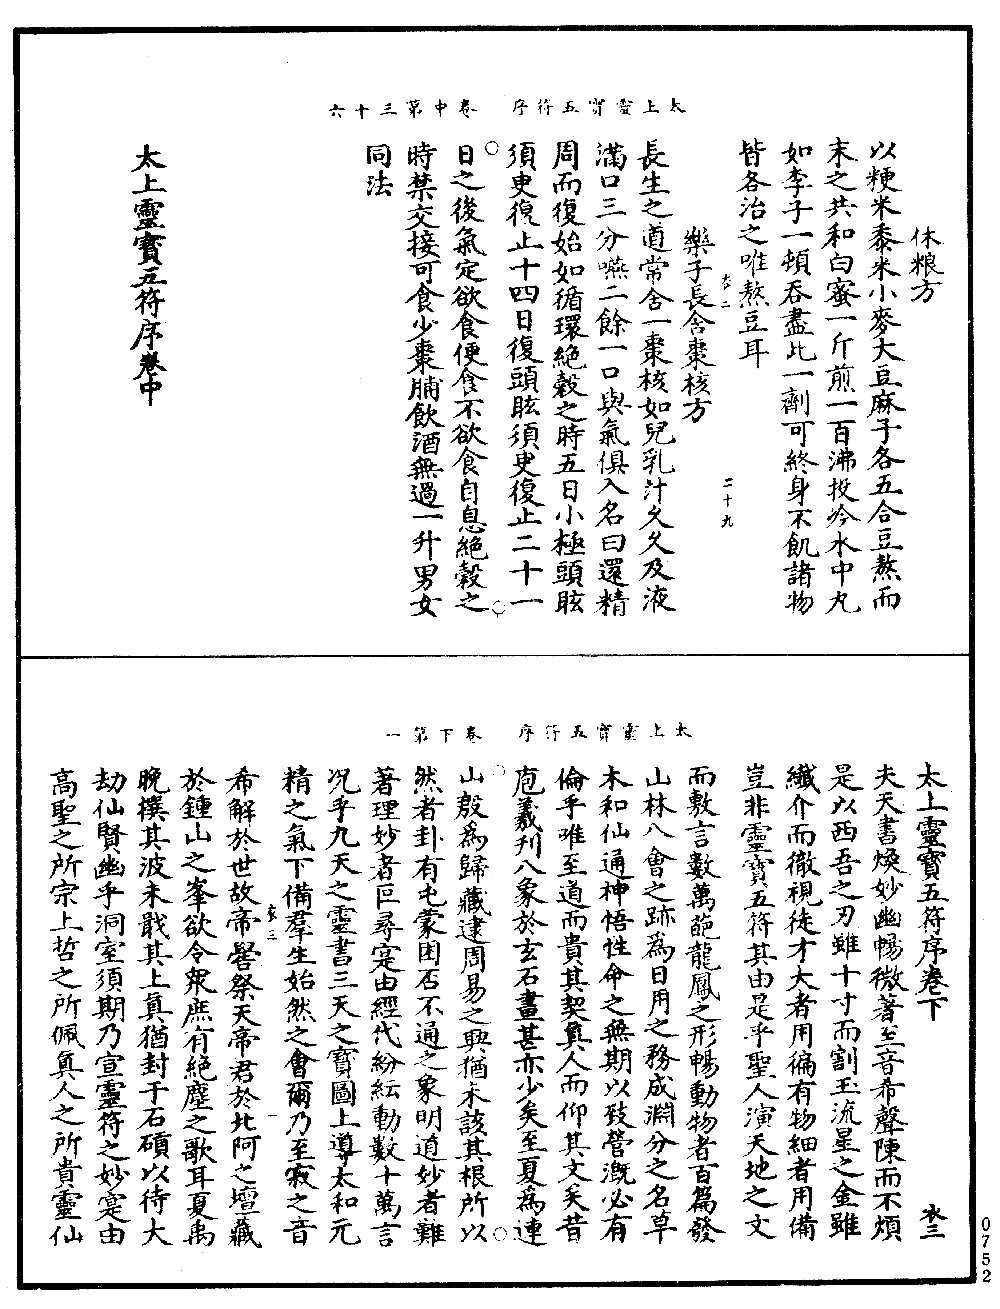 太上靈寶五符序　卷中第三十六
休粮方
以粳米黍米小麥大豆麻子各五合豆熬而
末之共和白蜜一斤煎一百沸投冷水中丸
如李子一頓吞盡此一劑可終身不飢諸物
皆各治之唯熬豆耳
衣二　二十九
樂子長含棗核方
長生之道常含一棗核如兒乳汁久久及液
滿口三分嚥二餘一口與氣俱入名曰還精
周而復始如循環絶穀之時五日小極頭眩
須臾復止十四日復頭眩須臾復止二十一
日之後氣定欲食便食不欲食自息絶穀之
時禁交接可食少棗脯飲酒無過一升男女
同法
太上靈寶五符序卷中
太上靈寶五符序　卷下第一
太上靈寶五符序卷下　衣三
夫天書煥妙幽暢微著至音希聲陳而不煩
是以西吾之刃雖十寸而割玉流星之金雖
纖介而徹視徒才大者用徧有物細者用備
豈非靈寶五符其由是乎聖人演天地之文
而敷言數萬葩龍鳳之形暢動物者百篇發
山林八會之跡為日用之務成淵分之名草
木和仙通神悟性命之無期以致營溉必有
倫乎唯至道而貴其契真人而仰其文矣昔
庖羲刋八象於玄石畫甚亦少矣至夏為連
山殷為歸藏逮周易之興猶未該其根所以
然者卦有屯蒙困否不通之象明道妙者難
著理妙者叵尋寔由經代紛紜動數十萬言
况乎九天之靈書三天之寶圖上導太和元
精之氣下備羣生始然之會爾乃至寂之音
希解於世故帝嚳祭天帝君於北阿之壇藏
衣三　一
於鍾山之峯欲令衆庶有絶塵之歌耳夏禹
晚撲其波未戢其上真猶封于石碩以待大
劫仙賢幽乎洞室須期乃宣靈符之妙寔由
高聖之所宗上哲之所佩真人之所貴靈仙
0752